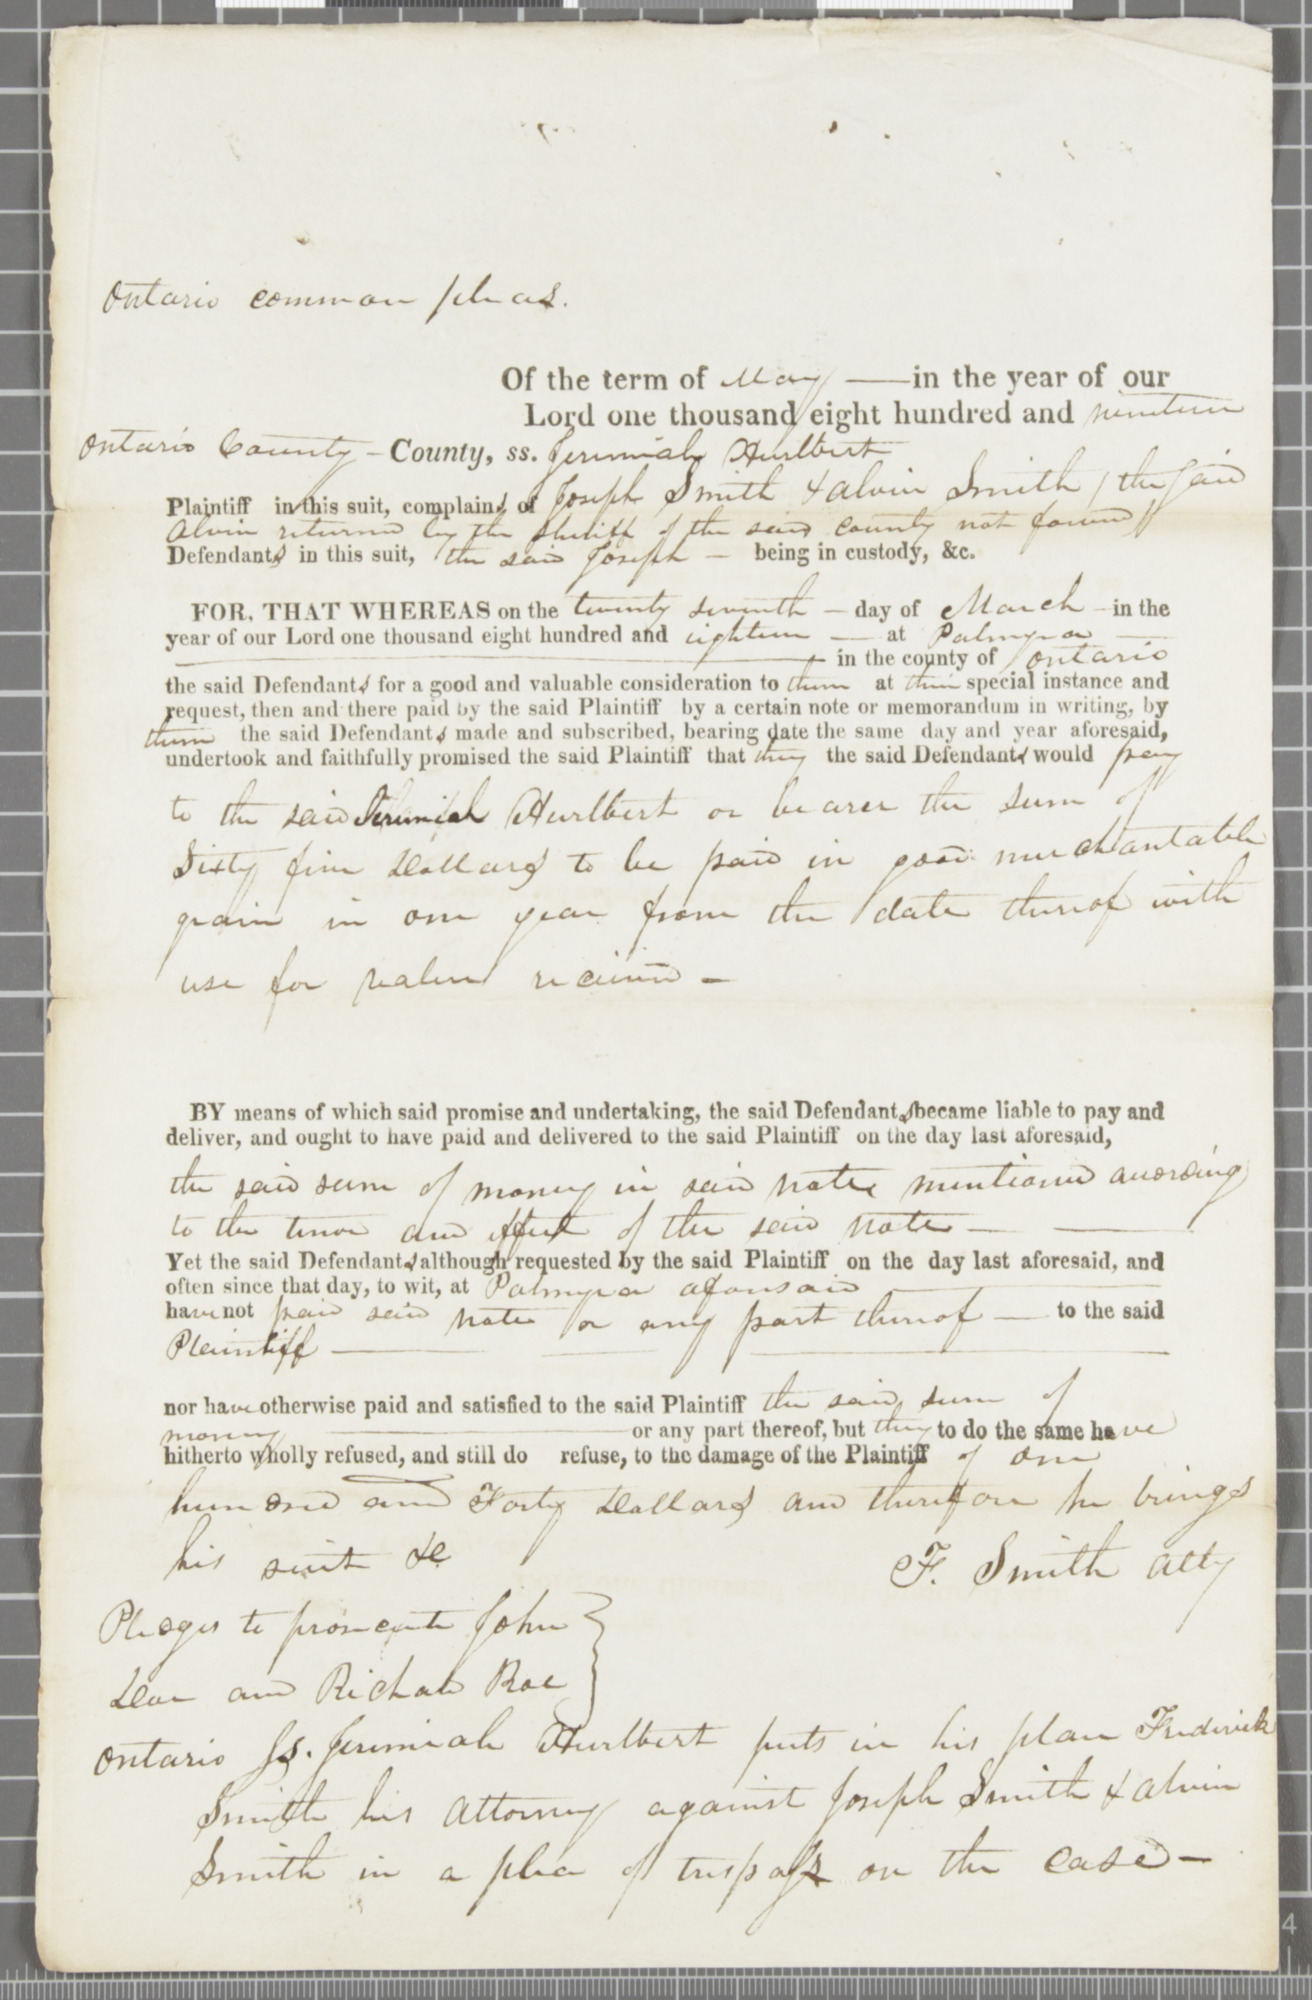 Ontario common pleas.
Of the term of May — in the year of our
Lord one thousand eight hundred and nineteen
Ontario County – County, ss. Jeremiah Hurlbert
Plaintiff in this suit, complains of Joseph Smith & Alvin Smith (the said
Alvin returned by the sheriff of the said county not found)
Defendants in this suit, the said Joseph — being in custody, &c.
FOR, THAT WHEREAS on the twenty seventh — day of March — in the
year of our Lord one thousand eight hundred and eighteen — at Palmyra —
— in the county of Ontario
the said Defendants for a good and valuable consideration to them at their special instance and
request, then and there paid by the said Plaintiff by a certain note or memorandum in writing, by
them the said Defendants made and subscribed, bearing date the same day and year aforesaid,
undertook and faithfully promised the said Plaintiff that they the said Defendants would pay
to the said Jeremiah Hurlbert or bearer the sum of
Sixty five Dollars to be paid in good merchantable
grain in one year from the date thereof with
use for value received —
BY means of which said promise and undertaking, the said Defendants became liable to pay and
deliver, and ought to have paid and delivered to the said Plaintiff on the day last aforesaid,
the said sum of money in said note mentioned according
to the tenor and effect of the said note —
Yet the said Defendants although requested by the said Plaintiff on the day last aforesaid, and
often since that day, to wit, at Palmyra aforesaid
have not paid said note or any part thereof — to the said
Plaintiff —
nor have otherwise paid and satisfied to the said Plaintiff the said sum of
money — or any part thereof, but they to do the same have
hitherto wholly refused, and still do refuse, to the damage of the Plaintiff of one
hundred and Forty Dollars and therefore he brings
his suit &c
F. Smith atty
Pledges to prosecute John
Doe and Richard Roe
Ontario Ss. Jeremiah Hurlbert puts in his place Frederick
Smith his attorney against Joseph Smith & Alvin
Smith in a plea of trespass on the case —
4